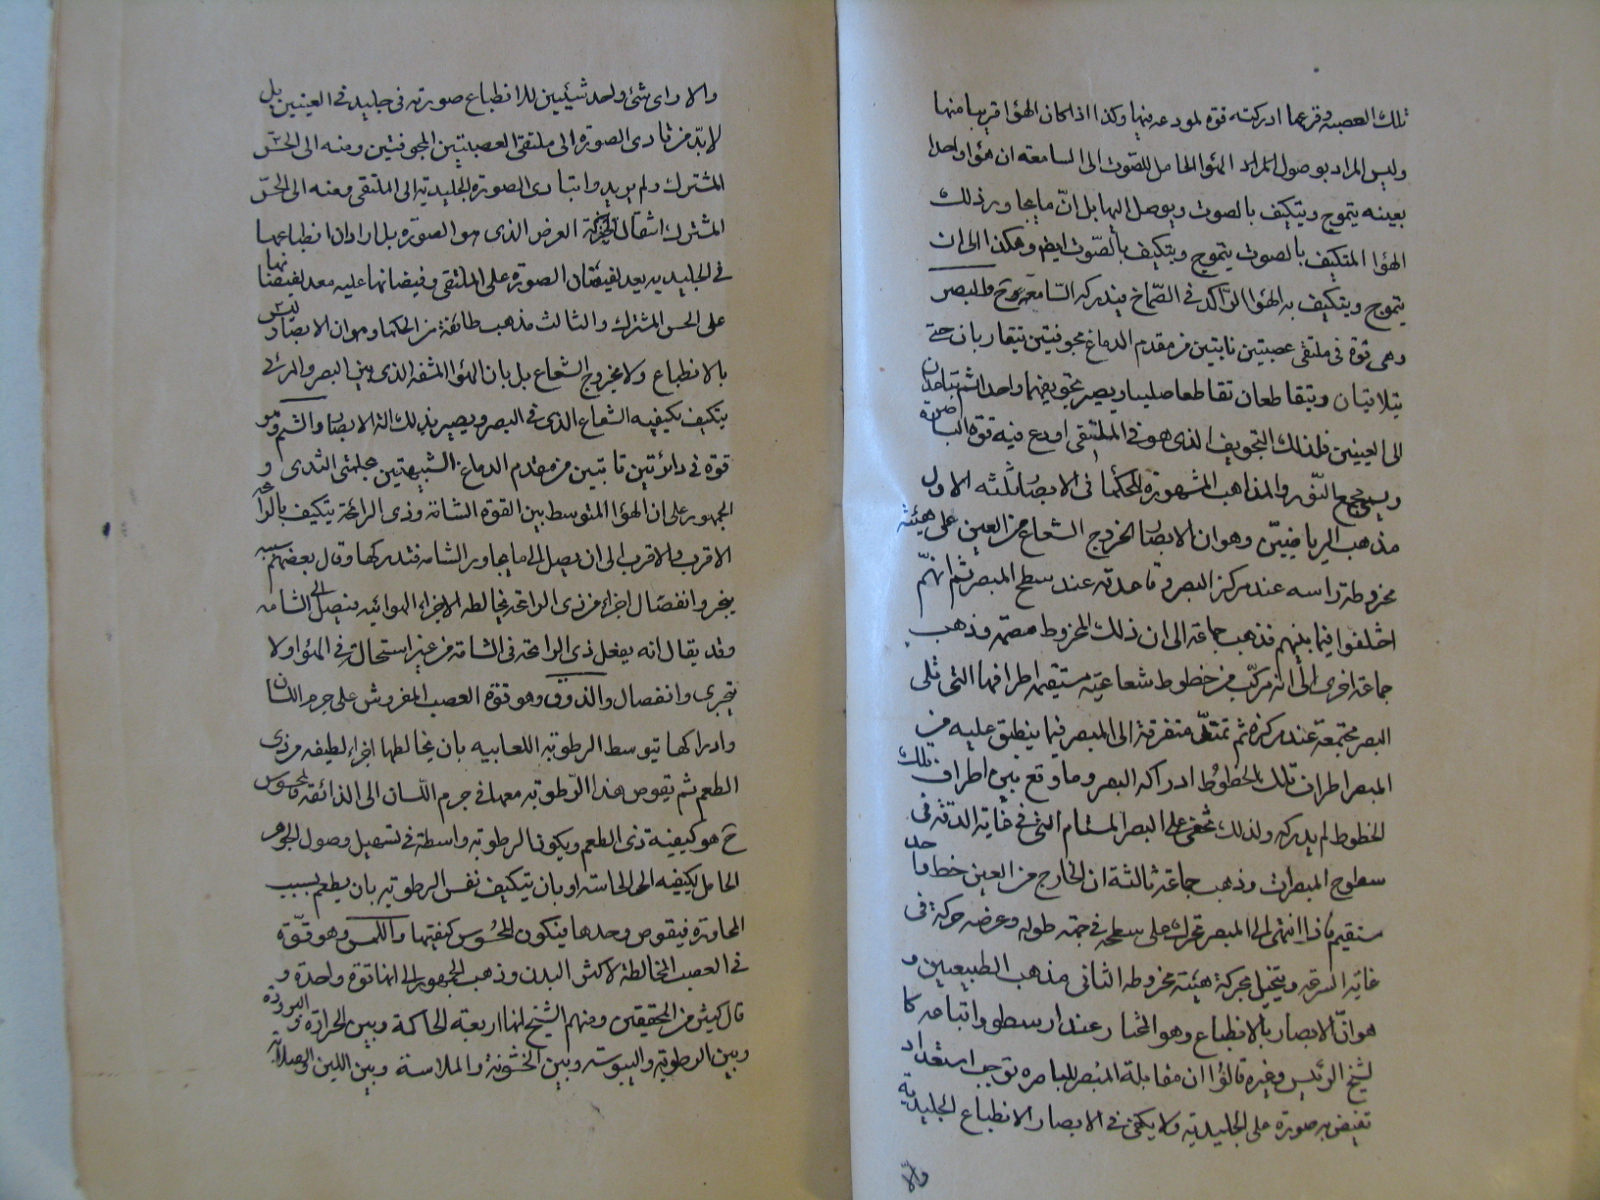 تلك العصبة وقرعها ادركته قوة لمودعة فيها وكذا اذا كان الهواء قريبا منها
وليس المراد بوصول الهواء الحامل للصوت الى السامعة ان هواء واحدا
بعينه يتموج ويتكيف بالصوت ويوصل اليها بل انّ ما يجاور ذلك
الهواء المتكيف بالصوت يتموج ويتكيف بالصّوت ايضا وهكذا الى ان
يتموج ويتكيف به الهواء الرّاكد في الصّماخ فيدركه السّامعة ح والبصر
وهي قوة في ملتقى عصبتين نابتين من مقدم الدماغ مجوفتين يتقاربان حتى
يتلاقيان ويتقاطعان تقاطعا صليبيا ويصير تجويفهما واحدا ثم يتباعدان
الى العينين فلذلك التجويف الذي هو في الملتقى اودع فيه قوة الباصرة
ويسمى مجمع النّور والمذاهب المشهورة للحكما في الابصار ثلثة الاول
مذهب الرياضيّين وهو ان الابصار بخروج الشعاع من العين على هيئة
مخروط راسه عند مركز البصر وقاعدته عند سطح المبصر ثم انهّم
اختلفوا فيما بينهم فذهب جماعة الى ان ذلك المخروط مصمت وذهب
جماعة اخرى الى انه مركّب من خطوط شعاعيّة مستقيمة اطرافها التي تلى
البصر مجتمعة عند مركزه ثم تمتدّ متفرقة الى المبصر فما ينطبق عليه من
المبصر اطراف تلك الخطوط ادركه البصر وما وقع بين اطراف تلك
الخطوط لم يدركه ولذلك تخفى على البصر المسام التي في غاية الدقة في
سطوح المبصرات وذهب جماعة ثالثة ان الخارج من العين خط واحد
مستقيم فاذا انتهى الى المبصر تحرك على سطحه في جهة طوله وعرضه حركة في
غاية السرعة ويتخيل بحركة هيئة مخروطة الثاني مذهب الطبيعيين و
هو انّ الابصار بالانطباع وهو المختار عند ارسطو واتباعه كا
لشيخ الرئيس وغيره قالوا ان مقابلة المبصر للباصرة توجب استعداد
تفيض به صورة على الجليدية ولا يكفى في الابصار الانطباع الجليدية
والا
والا وراى شئ واحد شيئين لانطباع صورته في جليدتي العينين بل
لابدّ من تادى الصورة الى ملتقى العصبتين المجوفتين ومنه الى الحسّ
المشترك ولم يريدوا بتادى الصورة الجليدية الى الملتقى ومنه الى الحسّ
المشترك انتقال العرض الذى هو الصورة بل ارادوا ان انطباعها
في الجليدية يعد لفيضان الصورة على الملتقى وفيضانها عليه معد لفيضانها
على الحس المشترك والثالث مذهب طائفة من الحكما وهو ان الابصار ليس
بالانطباع ولا بخروج الشعاع بل بان الهواء المشف الذي بين البصر والمرئى
يتكيف بكيفية الشعاع الذى في البصر ويصير بذلك الة الابصار والشم وهو
قوة في زائدتين نابتين من مقدم الدماغ الشبيهتين بحلمتى الثدى و
الجمهور على ان الهواء المتوسط بين القوة الشامة وذى الرائحة يتكيف بالرائحة
الاقرب فالاقرب الى ان يصل الى ما يجاور الشامة فتدركها وقال بعضهم سببه
تبخر وانفصال اجزاء من ذى الرائحة يخالطه الاجزاء الهوائية فيصل الى الشامة
وقد يقال انه يفعل ذى الرائحة في الشامة من غير استحالة في الهواء ولا
تجزى وانفصال والذوق وهو قوة العصب المفروش على جرم اللسان
وادراكها بتوسط الرطوبة اللعابية بان يخالطها اجزاء لطيفة من ذى
الطعم ثم يغوص هذه الرّطوبة معها في جرم اللّسان الى الذائقة فالمحسوس
ح هو كيفية ذى الطعم ويكون الرطوبة واسطة في تسهيل وصول الجوهر
الحامل لكيفية الى الحاسة او بان يتكيف نفس الرطوبة بان يطعم بسبب
المجاورة فيغوص وحدها فيكون المحسوس كيفيتها واللمس وهو قوّة
في العصب المخالطة لاكثر البدن وذهب الجمهور الى انها قوة واحدة و
قال كثير من المحققين ومنهم الشيخ انها اربعة الحاكمة وبين الحرارة والبرودة و
وبين الرطوبة واليبوسة وبين الخشونة والملاسة وبين اللين والصلابة